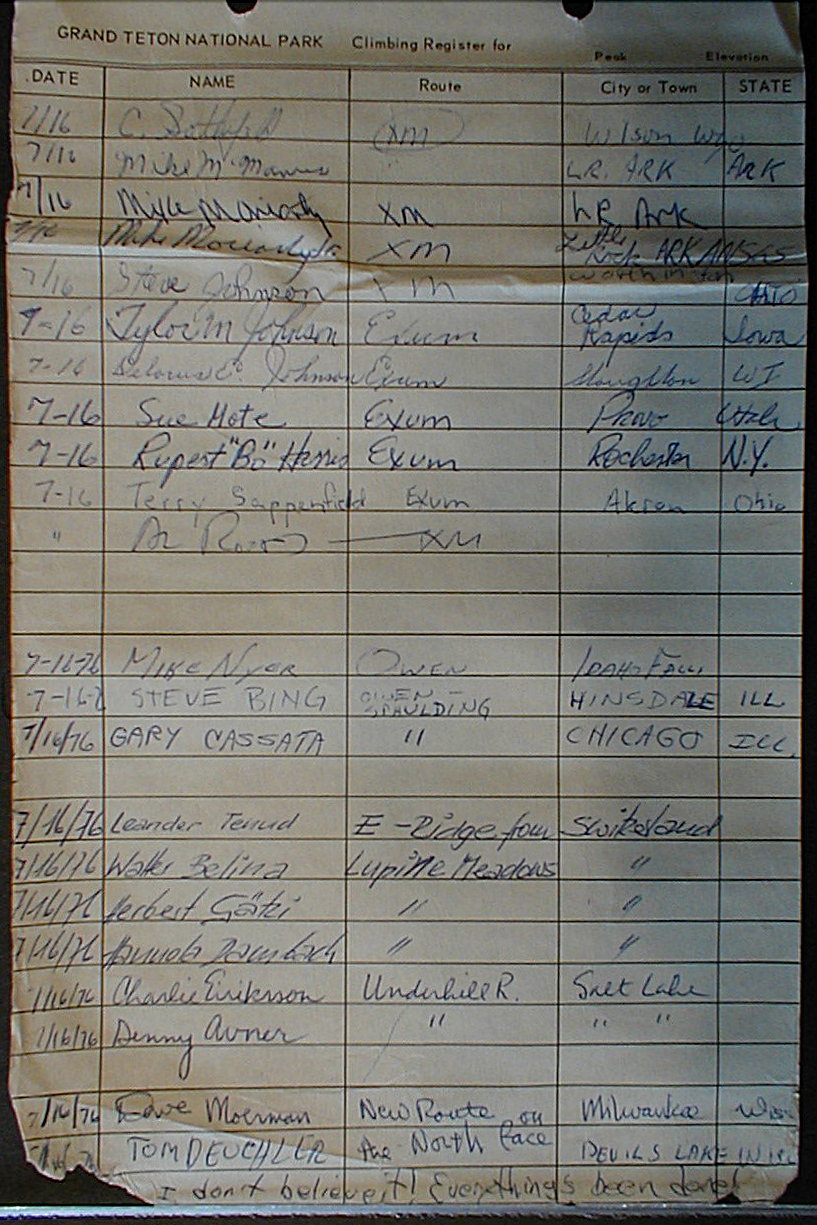 GRAND TETON NATIONAL PARK Climbing Register for Peak Elevation
DATE NAME Route City or Town STATE
7/16 C. XM Wilson Wyo
7/16 Mike McManus " L.R. ARK ARK
7/16 Mike Moriarty XM LR Ark
7/16 Mike Moriarty Jr XM Little Rock ARKANSAS
7/16 Steve Johnson XM Worthington OHIO
7-16 Tylor M Johnson Exum Cedar Rapids Iowa
7-16 Delorus E. Johnson Exum Stoughton WI
7-16 Sue Hote Exum Provo Utah
7-16 Rupert "Bo" Harris Exum Rochester N.Y.
7-16 Terry Sappenfield Exum Akron Ohio
" Al XM
7-16-76 MIKE NYER OWEN IDAHO FALLS
7-16-7 STEVE BING OWEN - SPAULDING HINSDALE ILL
7/16/76 GARY CASSATA " CHICAGO ILL.
7/16/76 Leander Tenud E-Ridge from Switzerland
7/16/76 Walter Belina Lupine Meadows "
7/16/76 Herbert Gätzi " "
7/16/76 " "
7/16/76 Charlie Eriksson Underhill R. Salt Lake
7/16/76 Denny Avner " " "
7/16/76 Dave Moerman New Route on Milwaukee Wisc
TOM DEUCHLER the North face DEVILS LAKE IN WI
I don't believe it! Everything's been done!